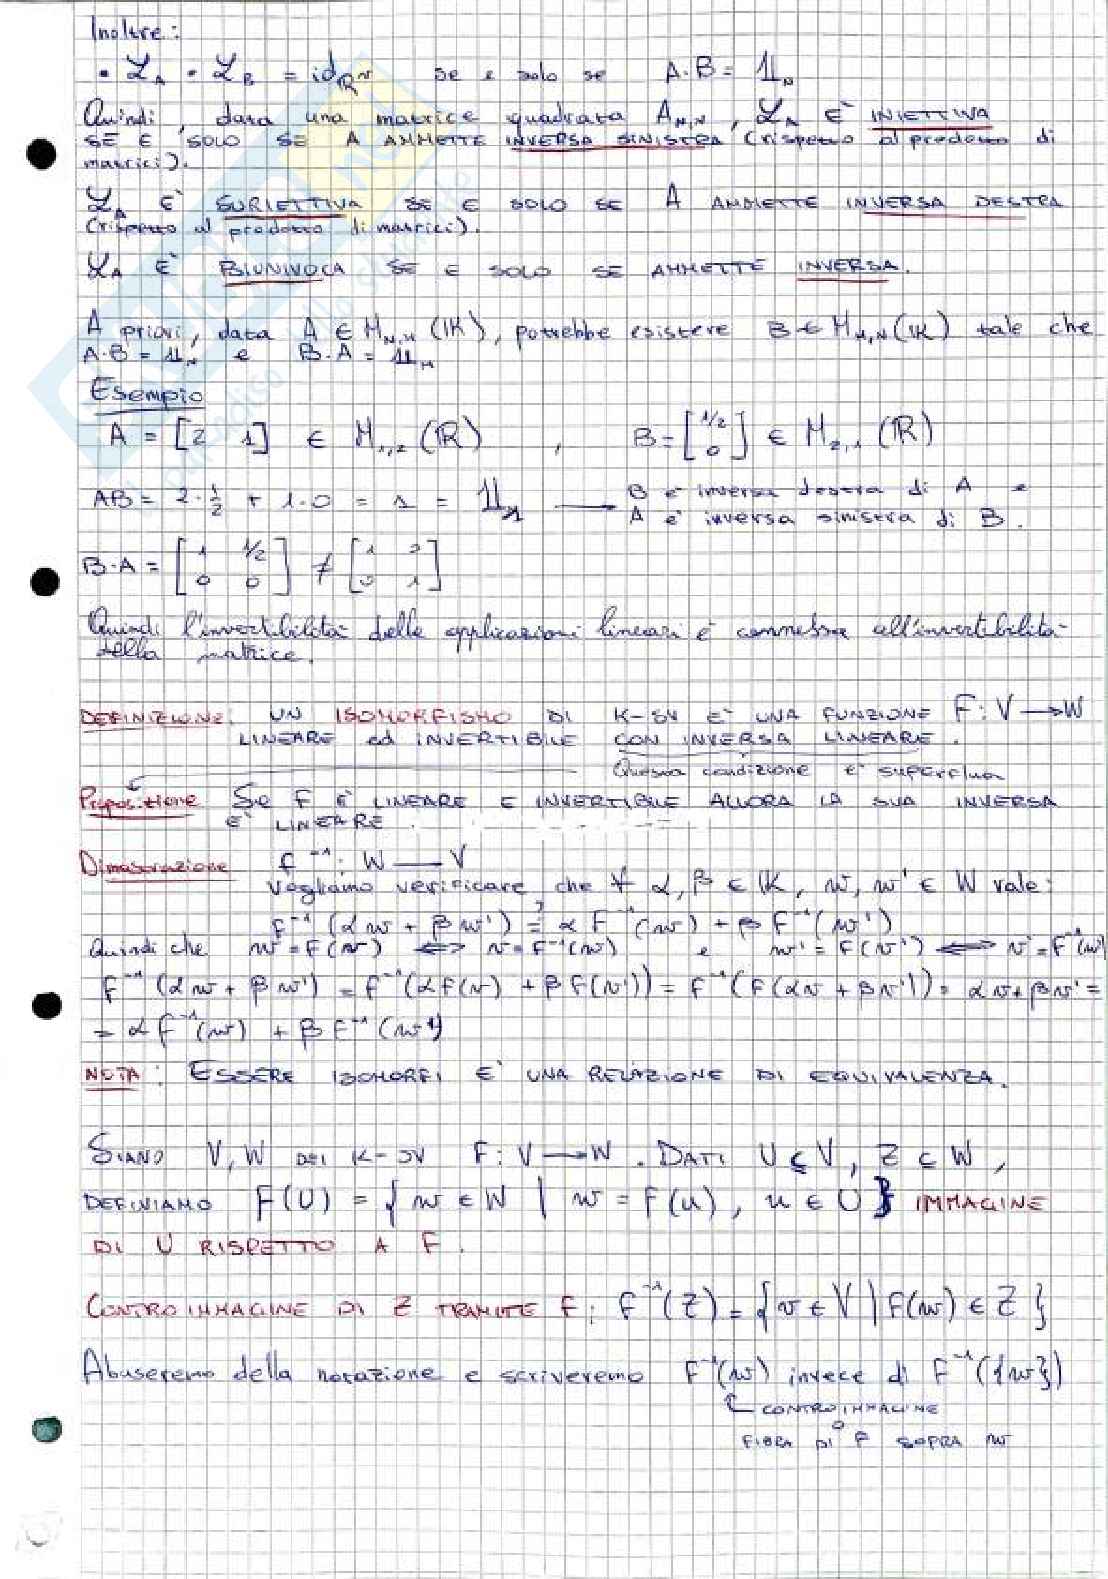 Inoltre:
• ℒ_A ∘ ℒ_B = id_ℝⁿ se e solo se A·B = 𝟙_N
Quindi, data una matrice quadrata A_N,N, ℒ_A E' INIETTIVA
SE E SOLO SE A AMMETTE INVERSA SINISTRA (rispetto al prodotto di
matrici).
ℒ_A E' SURIETTIVA SE E SOLO SE A AMMETTE INVERSA DESTRA
(rispetto al prodotto di matrici).
ℒ_A E' BIUNIVOCA SE E SOLO SE AMMETTE INVERSA.
A priori, data A ∈ M_N,M (𝕂), potrebbe esistere B ∈ M_M,N (𝕂) tale che
A·B = 𝟙_N e B·A = 𝟙_M
Esempio
A = [2 1] ∈ M_1,2 (ℝ) , B = [1/2 0] ∈ M_2,1 (ℝ)
AB = 2·1/2 + 1·0 = 1 = 𝟙_1 → B è inversa destra di A e
A è inversa sinistra di B.
B·A = [1 1/2 0 0] ≠ [1 0 0 1]
Quindi l'invertibilità delle applicazioni lineari è connessa all'invertibilità
della matrice.
DEFINIZIONE: UN ISOMORFISMO DI K-SV E' UNA FUNZIONE F: V → W
LINEARE ed INVERTIBILE CON INVERSA LINEARE.
Questa condizione è superflua
Proposizione Se F E' LINEARE E INVERTIBILE ALLORA LA SUA INVERSA
E' LINEARE.
Dimostrazione F⁻¹: W — V
Vogliamo verificare che ∀ α, β ∈ 𝕂, w, w' ∈ W vale:
F⁻¹(αw + βw') =? αF⁻¹(w) + βF⁻¹(w')
Quindi che w = F(v) ⟺ v = F⁻¹(w) e w' = F(v') ⟺ v' = F⁻¹(w')
F⁻¹(αw + βw') = F⁻¹(αF(v) + βF(v')) = F⁻¹(F(αv + βv')) = αv + βv' =
= αF⁻¹(w) + βF⁻¹(w')
NOTA: ESSERE ISOMORFI E' UNA RELAZIONE DI EQUIVALENZA.
SIANO V, W DEI K-SV F: V → W. DATI U ⊆ V, Z ⊂ W,
DEFINIAMO F(U) = { w ∈ W | w = F(u), u ∈ U } IMMAGINE
DI U RISPETTO A F.
CONTROIMMAGINE DI Z TRAMITE F: F⁻¹(Z) = { v ∈ V | F(v) ∈ Z }
Abuseremo della notazione e scriveremo F⁻¹(w) invece di F⁻¹({w})
CONTROIMMAGINE
O
FIBRA DI F SOPRA w